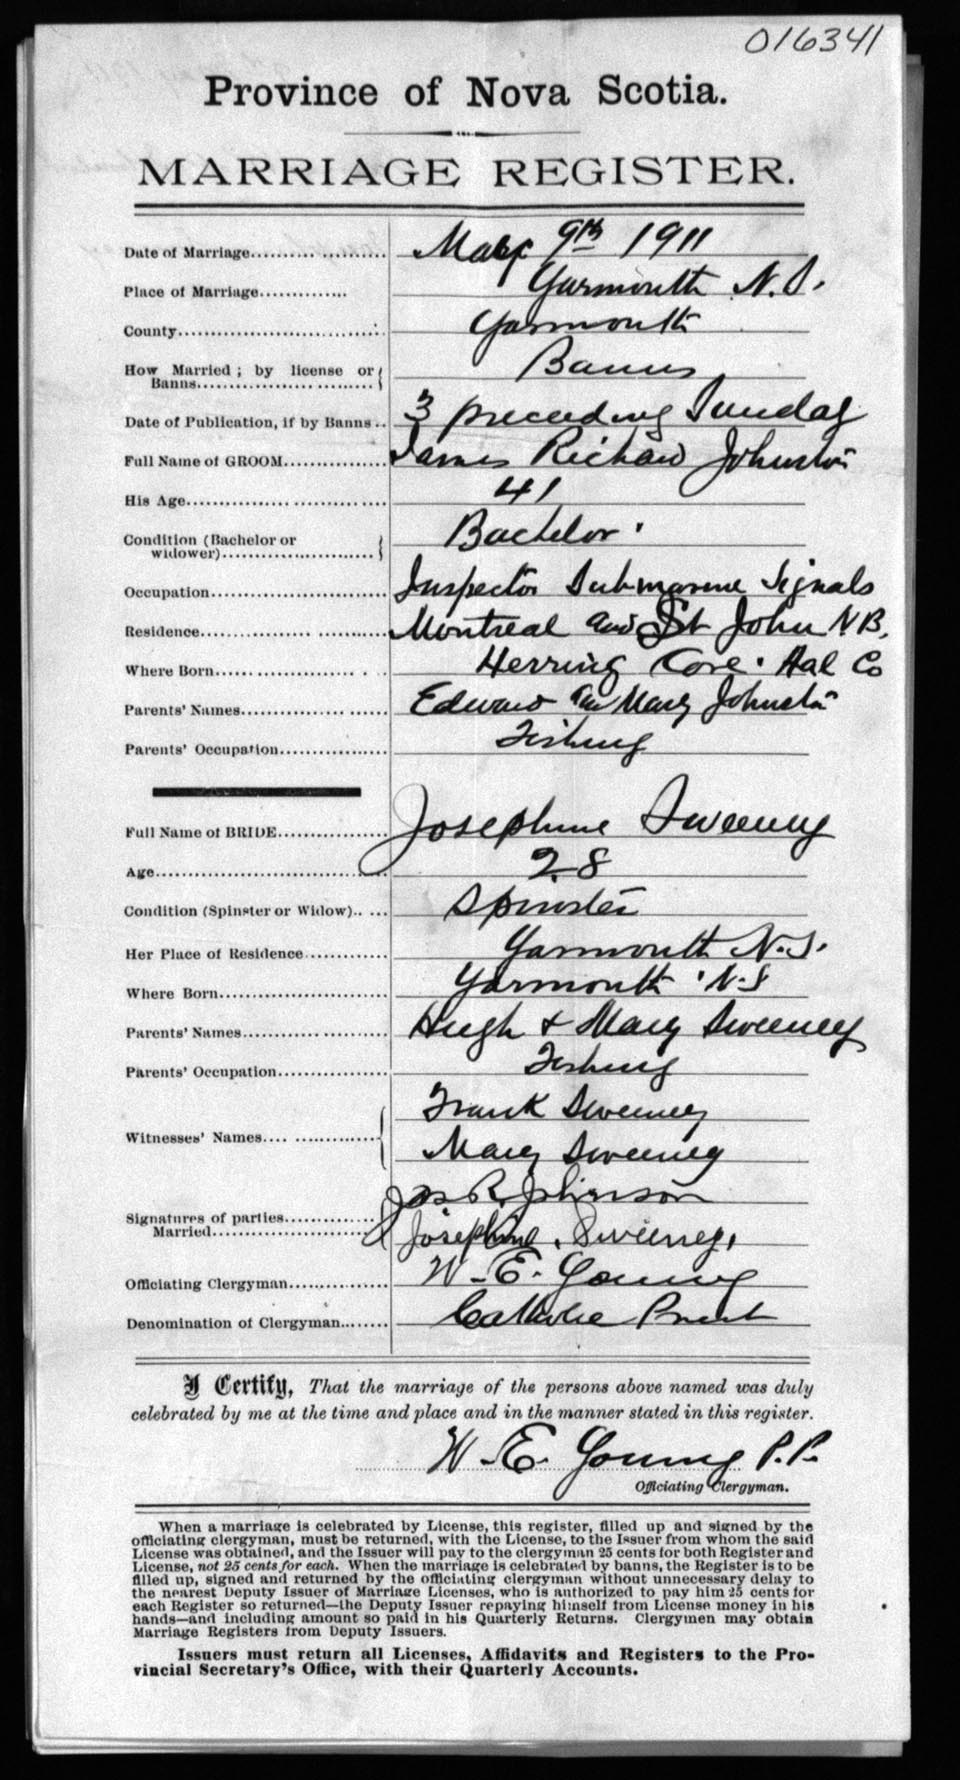 016341
Province of Nova Scotia.
MARRIAGE REGISTER.
Date of Marriage 9th 1911
Place of Marriage Yarmouth N.S.
County Yarmouth
How Married; by license or Banns Banns
Date of Publication, if by Banns 3 preceeding Sunday
Full Name of GROOM James Richard Johnston
His Age 41
Condition (Bachelor or widower) Bachelor.
Occupation Inspector Submarine Signals
Residence Montreal and St John NB.
Where Born Herring Cove. Hal Co
Parents' Names Edward Mary Johnston
Parents' Occupation Fishing
Full Name of BRIDE Josephine Sweeney
Age 28
Condition (Spinster or Widow) Spinster
Her Place of Residence Yarmouth N.S.
Where Born Yarmouth N.S
Parents' Names Hugh & Mary Sweeney
Parents' Occupation Fishing
Witnesses' Names Frank Sweeney
Mary Sweeney
Signatures of parties Married Jas R. Johnson
Josephine. Sweeney.
Officiating Clergyman W-E. Young
Denomination of Clergyman Catholic Priest
I Certify, That the marriage of the persons above named was duly
celebrated by me at the time and place and in the manner stated in this register.
W-E. Young P.P.
Officiating Clergyman.
When a marriage is celebrated by License, this register, filled up and signed by the
officiating clergyman, must be returned, with the License, to the Issuer from whom the said
License was obtained, and the Issuer will pay to the clergyman 25 cents for both Register and
License, not 25 cents for each. When the marriage is celebrated by banns, the Register is to be
filled up, signed and returned by the officiating clergyman without unnecessary delay to
the nearest Deputy Issuer of Marriage Licenses, who is authorized to pay him 25 cents for
each Register so returned—the Deputy Issuer repaying himself from License money in his
hands—and including amount so paid in his Quarterly Returns. Clergymen may obtain
Marriage Registers from Deputy Issuers.
Issuers must return all Licenses, Affidavits and Registers to the Pro-
vincial Secretary's Office, with their Quarterly Accounts.